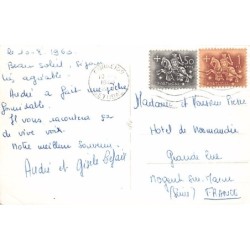 Le 10-9-1960
Beau soleil,
très agréable.
André a fait une pêche
formidable.
Il vous racontera ça
de vive voix.
Notre meilleur souvenir.
André et Gisèle
Madame et Monsieur Pierre
Hotel de Normandie
Grande Rue
Nogent sur Marne
(Seine) FRANCE